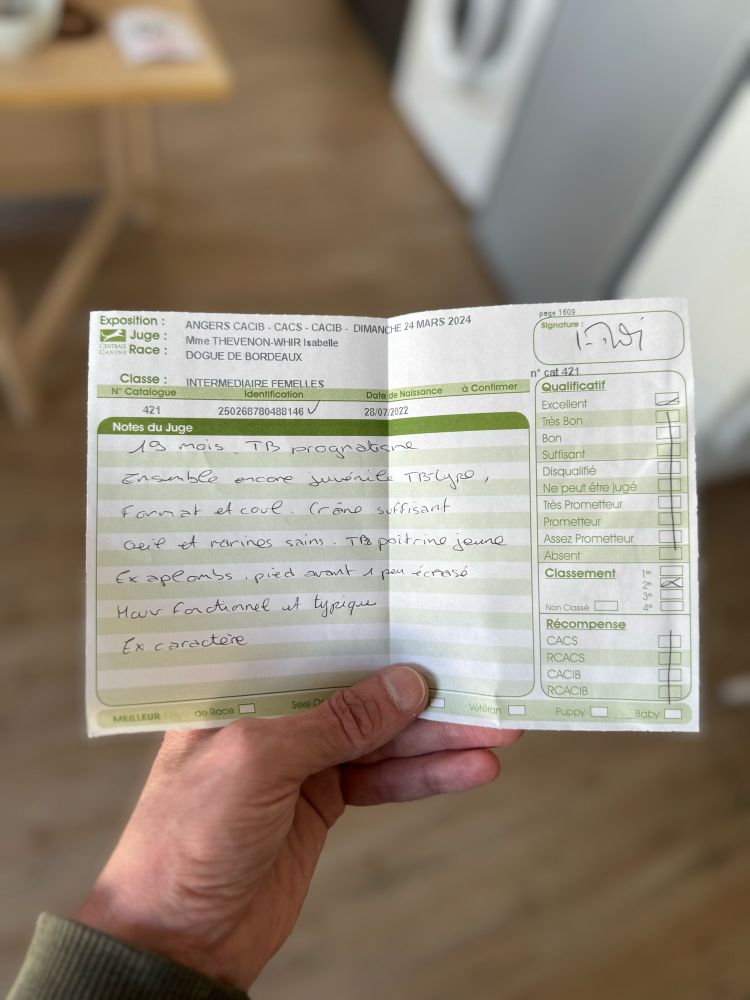 Exposition : ANGERS CACIB - CACS - CACIB - DIMANCHE 24 MARS 2024
CENTRALE CANINE
Juge : Mme THEVENON-WHIR Isabelle
Race : DOGUE DE BORDEAUX
Classe : INTERMEDIAIRE FEMELLES
N° Catalogue Identification Date de Naissance à Confirmer
421 250268780488146 28/07/2022
Notes du Juge
19 mois. TB prognatisme
Ensemble encore juvénile TB type,
Format et coul. Crâne suffisant
Oeil et narines sains. TB poitrine jeune
Ex aplombs, pied avant 1 peu écrasé
Mouv fonctionnel et typique
Ex caractère
MEILLEUR : de Race Sexe Vétéran Puppy Baby
page 1609
Signature :
n° cat 421
Qualificatif
Excellent
Très Bon
Bon
Suffisant
Disqualifié
Ne peut être jugé
Très Prometteur
Prometteur
Assez Prometteur
Absent
Classement 1er
2e
3e
Non Classé 4e
Récompense
CACS
RCACS
CACIB
RCACIB